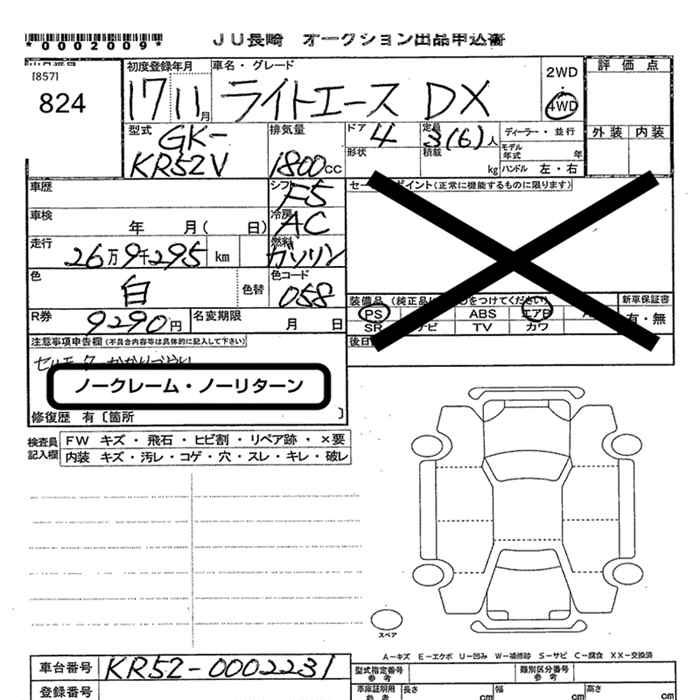 *0002009*
JU長崎 オークション出品申込書
[857]
824
初度登録年月
17 11月
車名・グレード
ライトエース DX
2WD
4WD
評価点
外装 内装
型式
GK-
KR52V
排気量
1800cc
ドア 4
形状
定員 3(6)人
積載 kg
ディーラー・並行
モデル年式 年
ハンドル 左・右
車歴
シフト F5
車検 年 月( 日)
冷房 AC
走行 26万9千295 km
燃料 ガソリン
色 白
色替
色コード 058
R券 9290円
名変期限 月 日
ポイント(正常に機能するものに限ります)
装備品(純正品に
をつけてください)
新車保証書
有・無
PS ABS エアB
SR TV カワ
後日
注意事項申告欄(不具合内容等は具体的に記入して下さい)
ノークレーム・ノーリターン
修復歴 有〔箇所 〕
検査員記入欄
FW キズ・飛石・ヒビ割・リペア跡・×要
内装 キズ・汚レ・コゲ・穴・スレ・キレ・破レ
スペア
A-キズ E-エクボ U-凹み W-補修跡 S-サビ C-腐食 XX-交換済
車台番号 KR52-0002231
登録番号
型式指定番号 参考
類別区分番号 参考
車庫証明用 参考
長さ cm
幅
高さ cm